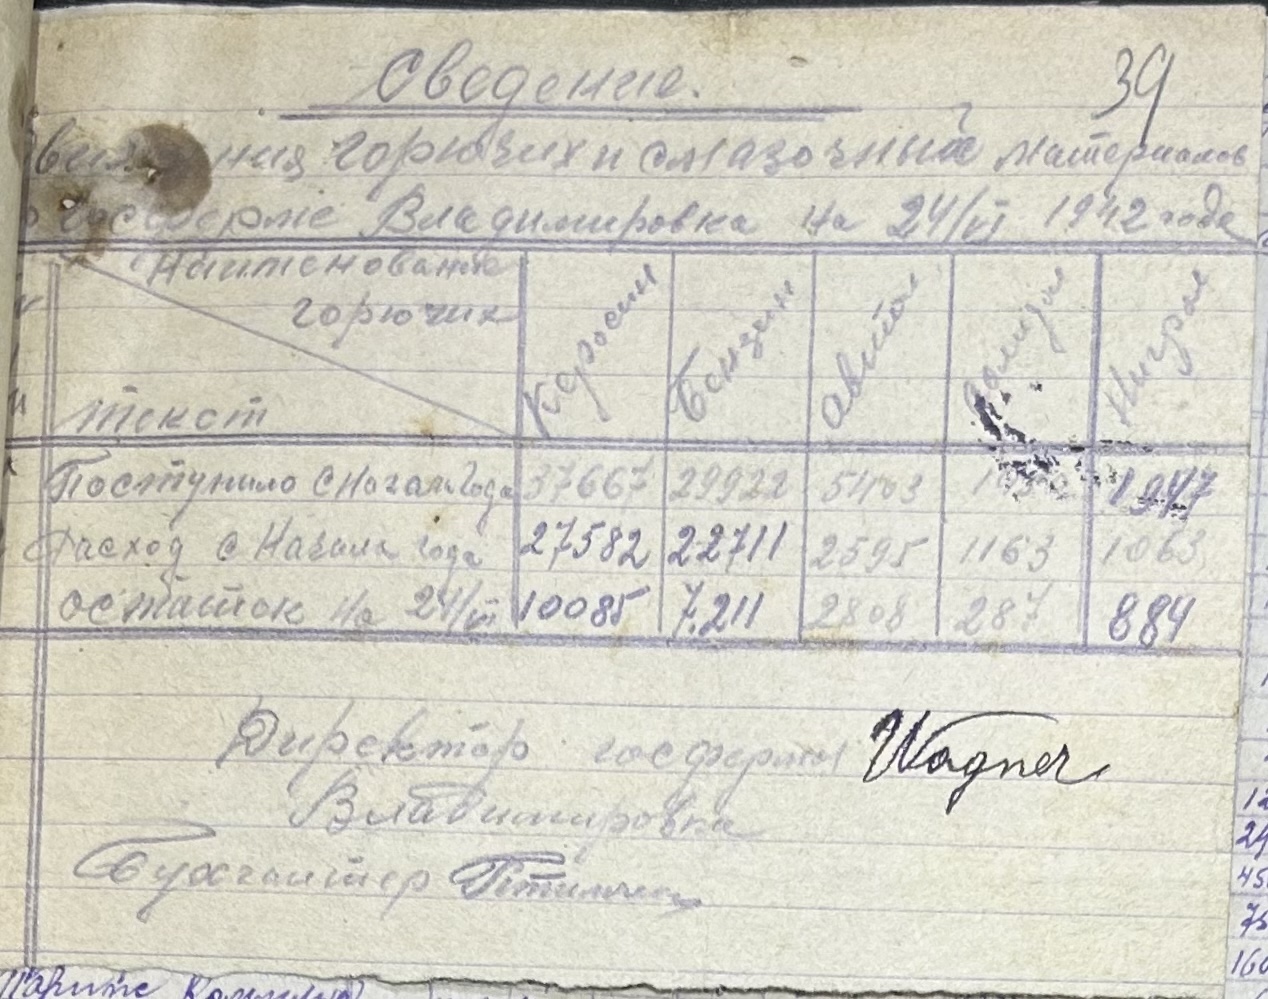 Сведение.
39
горючих и смазочных материалов
госферме Владимировка на 24/VI 1942 года
Наименование
горючих
текст
Керосин
Бензин
Автол
Нигрол
Поступило с Начала года 37667 29922 5403 1947
Расход с Начала года 27582 22711 2595 1163 1063
Остаток на 24/VI 10085 7.211 2808 287 884
Директор госфермы Wagner
Владимировка
Бухгалтер
12
24
45
75
160